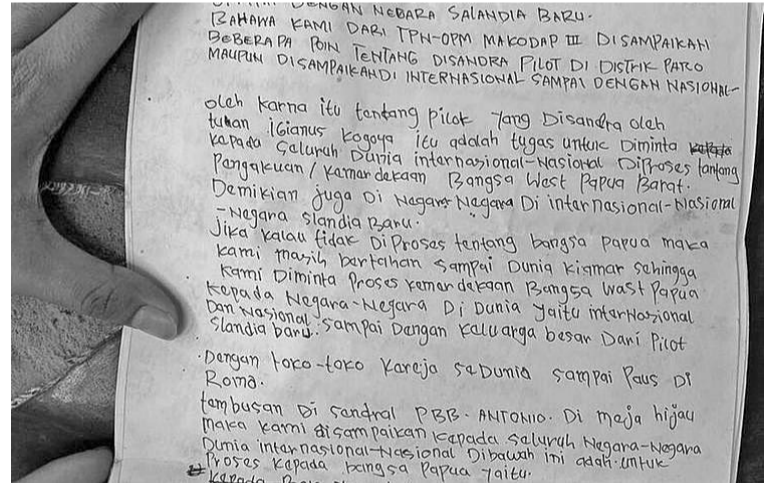 DENGAN NEBARA SALANDIA BARU.
BAHAWA KAMI DARI TPN-OPM MAKODAP III DISAMPAIKAN
BEBERAPA POIN TENTANG DISANDRA PILOT DI DISTRIK PARO
MAUPUN DISAMPAIKANDI INTERNASIONAL SAMPAI DENGAN NASIONAL-
oleh karna itu tentang Pilot yang Disandra oleh
tuhan iGianus Kogoya itu adalah tugas untuk Diminta
kapada Saluruh Dunia internasional-Nasional Diproses tantang
Pangakuan/kamardekaan Bangsa West Papua Barat.
Demikian juga Di Negara Negara Di internasional-Nasional
-Negara slandia Baru.
Jika kalau tidak Diproses tentang bangsa papua maka
kami masih bartahan sampai Dunia kiamar sehingga
kami Diminta Proses kamardekaan Bangsa Wast Papua
kepada Negara-Negara Di Dunia yaitu internasional
Dan Nasional sampai Dengan kaluarga besar Dari Pilot
Slandia baru.
.Dengan toko-toko kareja seDunia sampai Paus Di
Roma.
tambusan Di sandral PBB. ANTONIO. Di maja hijau
maka kami disampaikan kepada saluruh Nagara-Nagara
Dunia internasional-Nasional Dibawah ini adah untuk
Proses kapada bangsa Papua yaitu.
kepada